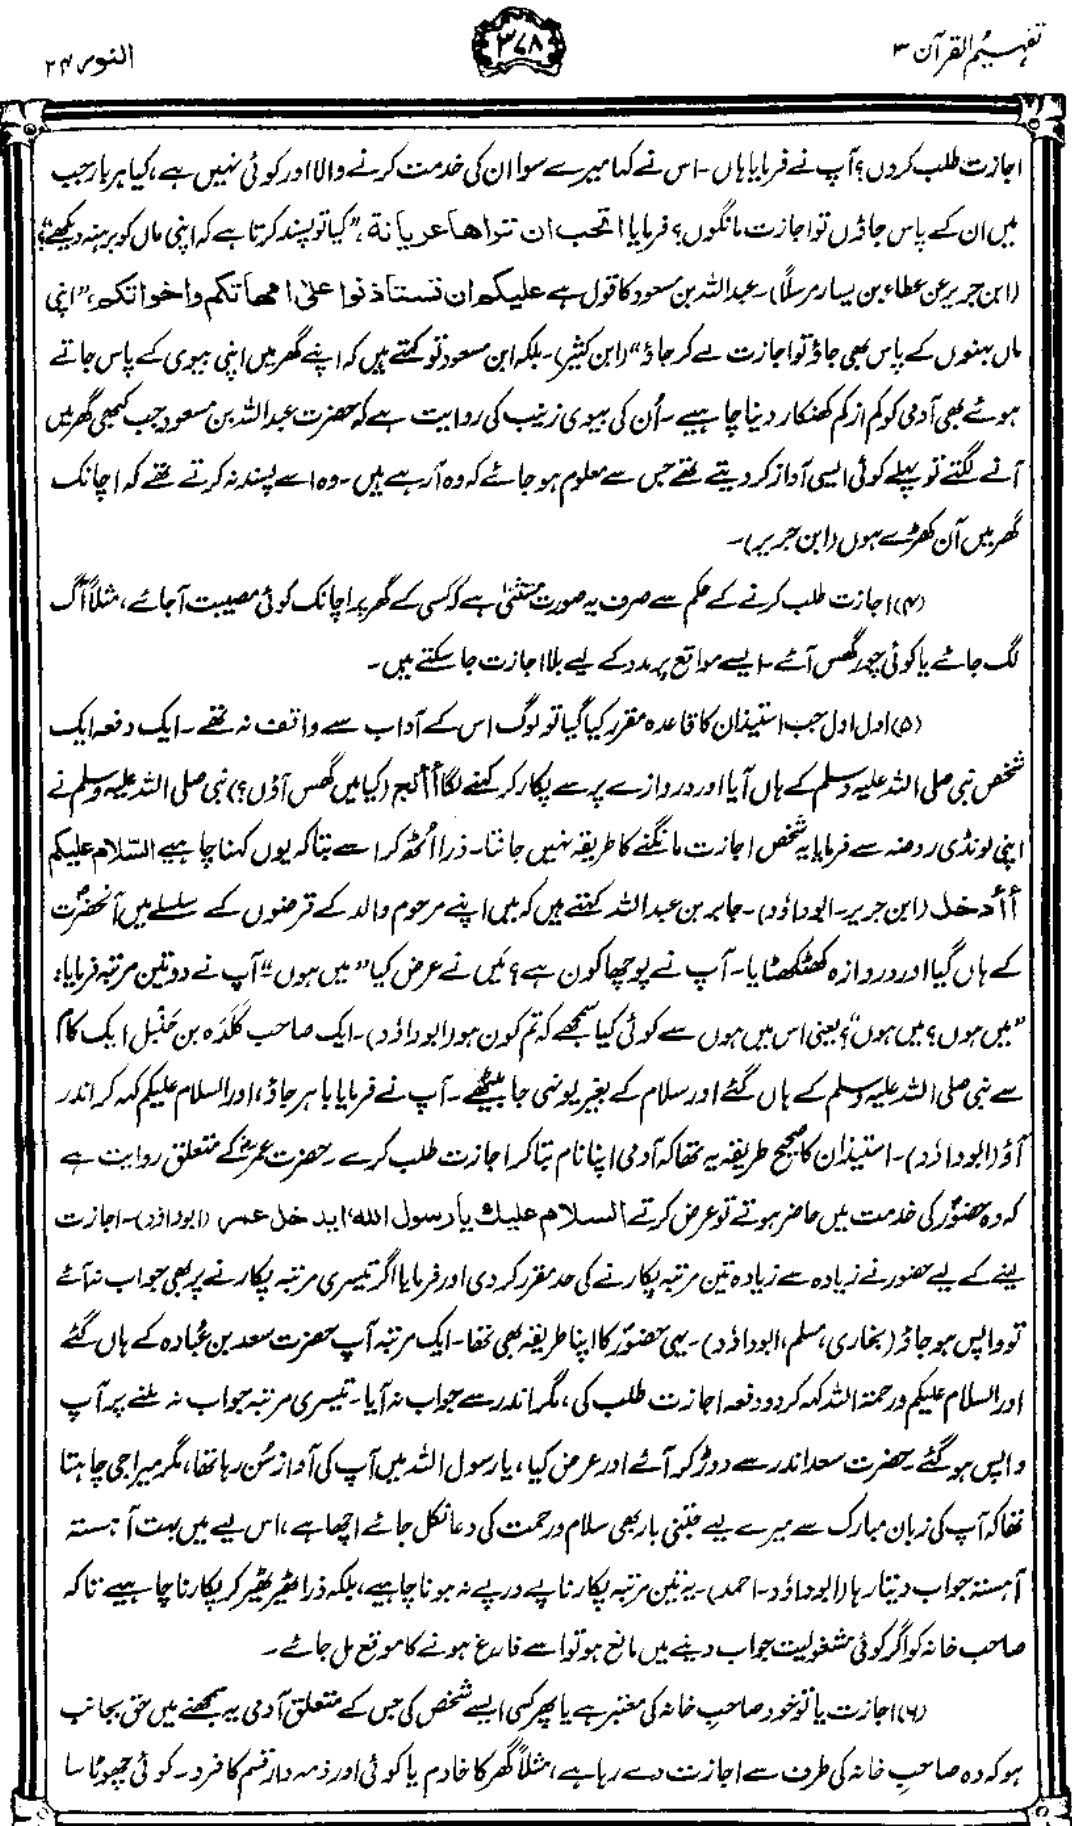 تفہیم القرآن ۳
۳۷۸
النور ۲۴
اجازت طلب کروں؟ آپ نے فرمایا ہاں۔ اس نے کہا میرے سوا ان کی خدمت کرنے والا اور کوئی نہیں ہے، کیا ہر بار جب
میں ان کے پاس جاؤں تو اجازت مانگوں؟ فرمایا اتحب ان تراھا عریانة، ”کیا تو پسند کرتا ہے کہ اپنی ماں کو برہنہ دیکھے“؟
(ابن جریر عن عطاء بن یسار مرسلًا)۔ عبداللہ بن مسعود کا قول ہے علیکم ان تستاذنوا علیٰ امھاتکم واخواتکم، ”اپنی
ماں بہنوں کے پاس بھی جاؤ تو اجازت لے کر جاؤ“ (ابن کثیر)۔ بلکہ ابن مسعود تو کہتے ہیں کہ اپنے گھر میں اپنی بیوی کے پاس جاتے
ہوئے بھی آدمی کو کم از کم کھنکار دینا چاہیے۔ اُن کی بیوی زینب کی روایت ہے کہ حضرت عبداللہ بن مسعود جب کبھی گھر میں
آنے لگتے تو پہلے کوئی ایسی آواز کر دیتے تھے جس سے معلوم ہو جائے کہ وہ آ رہے ہیں۔ وہ اسے پسند نہ کرتے تھے کہ اچانک
گھر میں آن کھڑے ہوں (ابن جریر)۔
(۴) اجازت طلب کرنے کے حکم سے صرف یہ صورت مستثنیٰ ہے کہ کسی کے گھر پر اچانک کوئی مصیبت آجائے، مثلاً آگ
لگ جائے یا کوئی چور گھس آئے۔ ایسے مواقع پر مدد کے لیے بلا اجازت جا سکتے ہیں۔
(۵) اول اول جب استیذان کا قاعدہ مقرر کیا گیا تو لوگ اس کے آداب سے واقف نہ تھے۔ ایک دفعہ ایک
شخص نبی صلی اللہ علیہ وسلم کے ہاں آیا اور دروازے پر سے پکار کر کہنے لگا أألج (کیا میں گھس آؤں؟) نبی صلی اللہ علیہ وسلم نے
اپنی لونڈی روضہ سے فرمایا یہ شخص اجازت مانگنے کا طریقہ نہیں جانتا۔ ذرا اُٹھ کر اسے بتا کہ یوں کہنا چاہیے السّلام علیکم
أأدخل (ابن جریر۔ ابوداؤد)۔ جابر بن عبداللہ کہتے ہیں کہ میں اپنے مرحوم والد کے قرضوں کے سلسلے میں آنحضرتؐ
کے ہاں گیا اور دروازہ کھٹکھٹایا۔ آپ نے پوچھا کون ہے؟ میں نے عرض کیا ”میں ہوں“۔ آپ نے دو تین مرتبہ فرمایا:
”میں ہوں؟ میں ہوں“؟ یعنی اس میں ہوں سے کوئی کیا سمجھے کہ تم کون ہو (ابوداؤد)۔ ایک صاحب کَلَدَہ بن حَنْبَل ایک کام
سے نبی صلی اللہ علیہ وسلم کے ہاں گئے اور سلام کے بغیر یونہی جا بیٹھے۔ آپ نے فرمایا باہر جاؤ، اور السلام علیکم کہہ کر اندر
آؤ (ابوداؤد)۔ استیذان کا صحیح طریقہ یہ تھا کہ آدمی اپنا نام بتا کر اجازت طلب کرے۔ حضرت عمرؓ کے متعلق روایت ہے
کہ وہ حضورؐ کی خدمت میں حاضر ہوتے تو عرض کرتے السلام علیك یا رسول الله، اید خل عمر (ابوداؤد)۔ اجازت
لینے کے لیے حضور نے زیادہ سے زیادہ تین مرتبہ پکارنے کی حد مقرر کر دی اور فرمایا اگر تیسری مرتبہ پکارنے پر بھی جواب نہ آئے
تو واپس ہو جاؤ (بخاری، مسلم، ابوداؤد)۔ یہی حضورؐ کا اپنا طریقہ بھی تھا۔ ایک مرتبہ آپ حضرت سعد بن عُبادہ کے ہاں گئے
اور السلام علیکم ورحمۃ اللہ کہہ کر دو دفعہ اجازت طلب کی، مگر اندر سے جواب نہ آیا۔ تیسری مرتبہ جواب نہ ملنے پر آپ
واپس ہو گئے۔ حضرت سعد اندر سے دوڑ کر آئے اور عرض کیا، یا رسول اللہ میں آپ کی آواز سُن رہا تھا، مگر میرا جی چاہتا
تھا کہ آپ کی زبان مبارک سے میرے لیے جتنی بار بھی سلام و رحمت کی دعا نکل جائے اچھا ہے، اس لیے میں بہت آہستہ
آہستہ جواب دیتا رہا (ابوداؤد۔ احمد)۔ یہ تین مرتبہ پکارنا پے در پے نہ ہونا چاہیے، بلکہ ذرا ٹھیر ٹھیر کر پکارنا چاہیے تاکہ
صاحب خانہ کو اگر کوئی مشغولیت جواب دینے میں مانع ہو تو اسے فارغ ہونے کا موقع مل جائے۔
(۶) اجازت یا تو خود صاحبِ خانہ کی معتبر ہے یا پھر کسی ایسے شخص کی جس کے متعلق آدمی یہ سمجھنے میں حق بجانب
ہو کہ وہ صاحبِ خانہ کی طرف سے اجازت دے رہا ہے، مثلاً گھر کا خادم یا کوئی اور ذمہ دار قسم کا فرد۔ کوئی چھوٹا سا